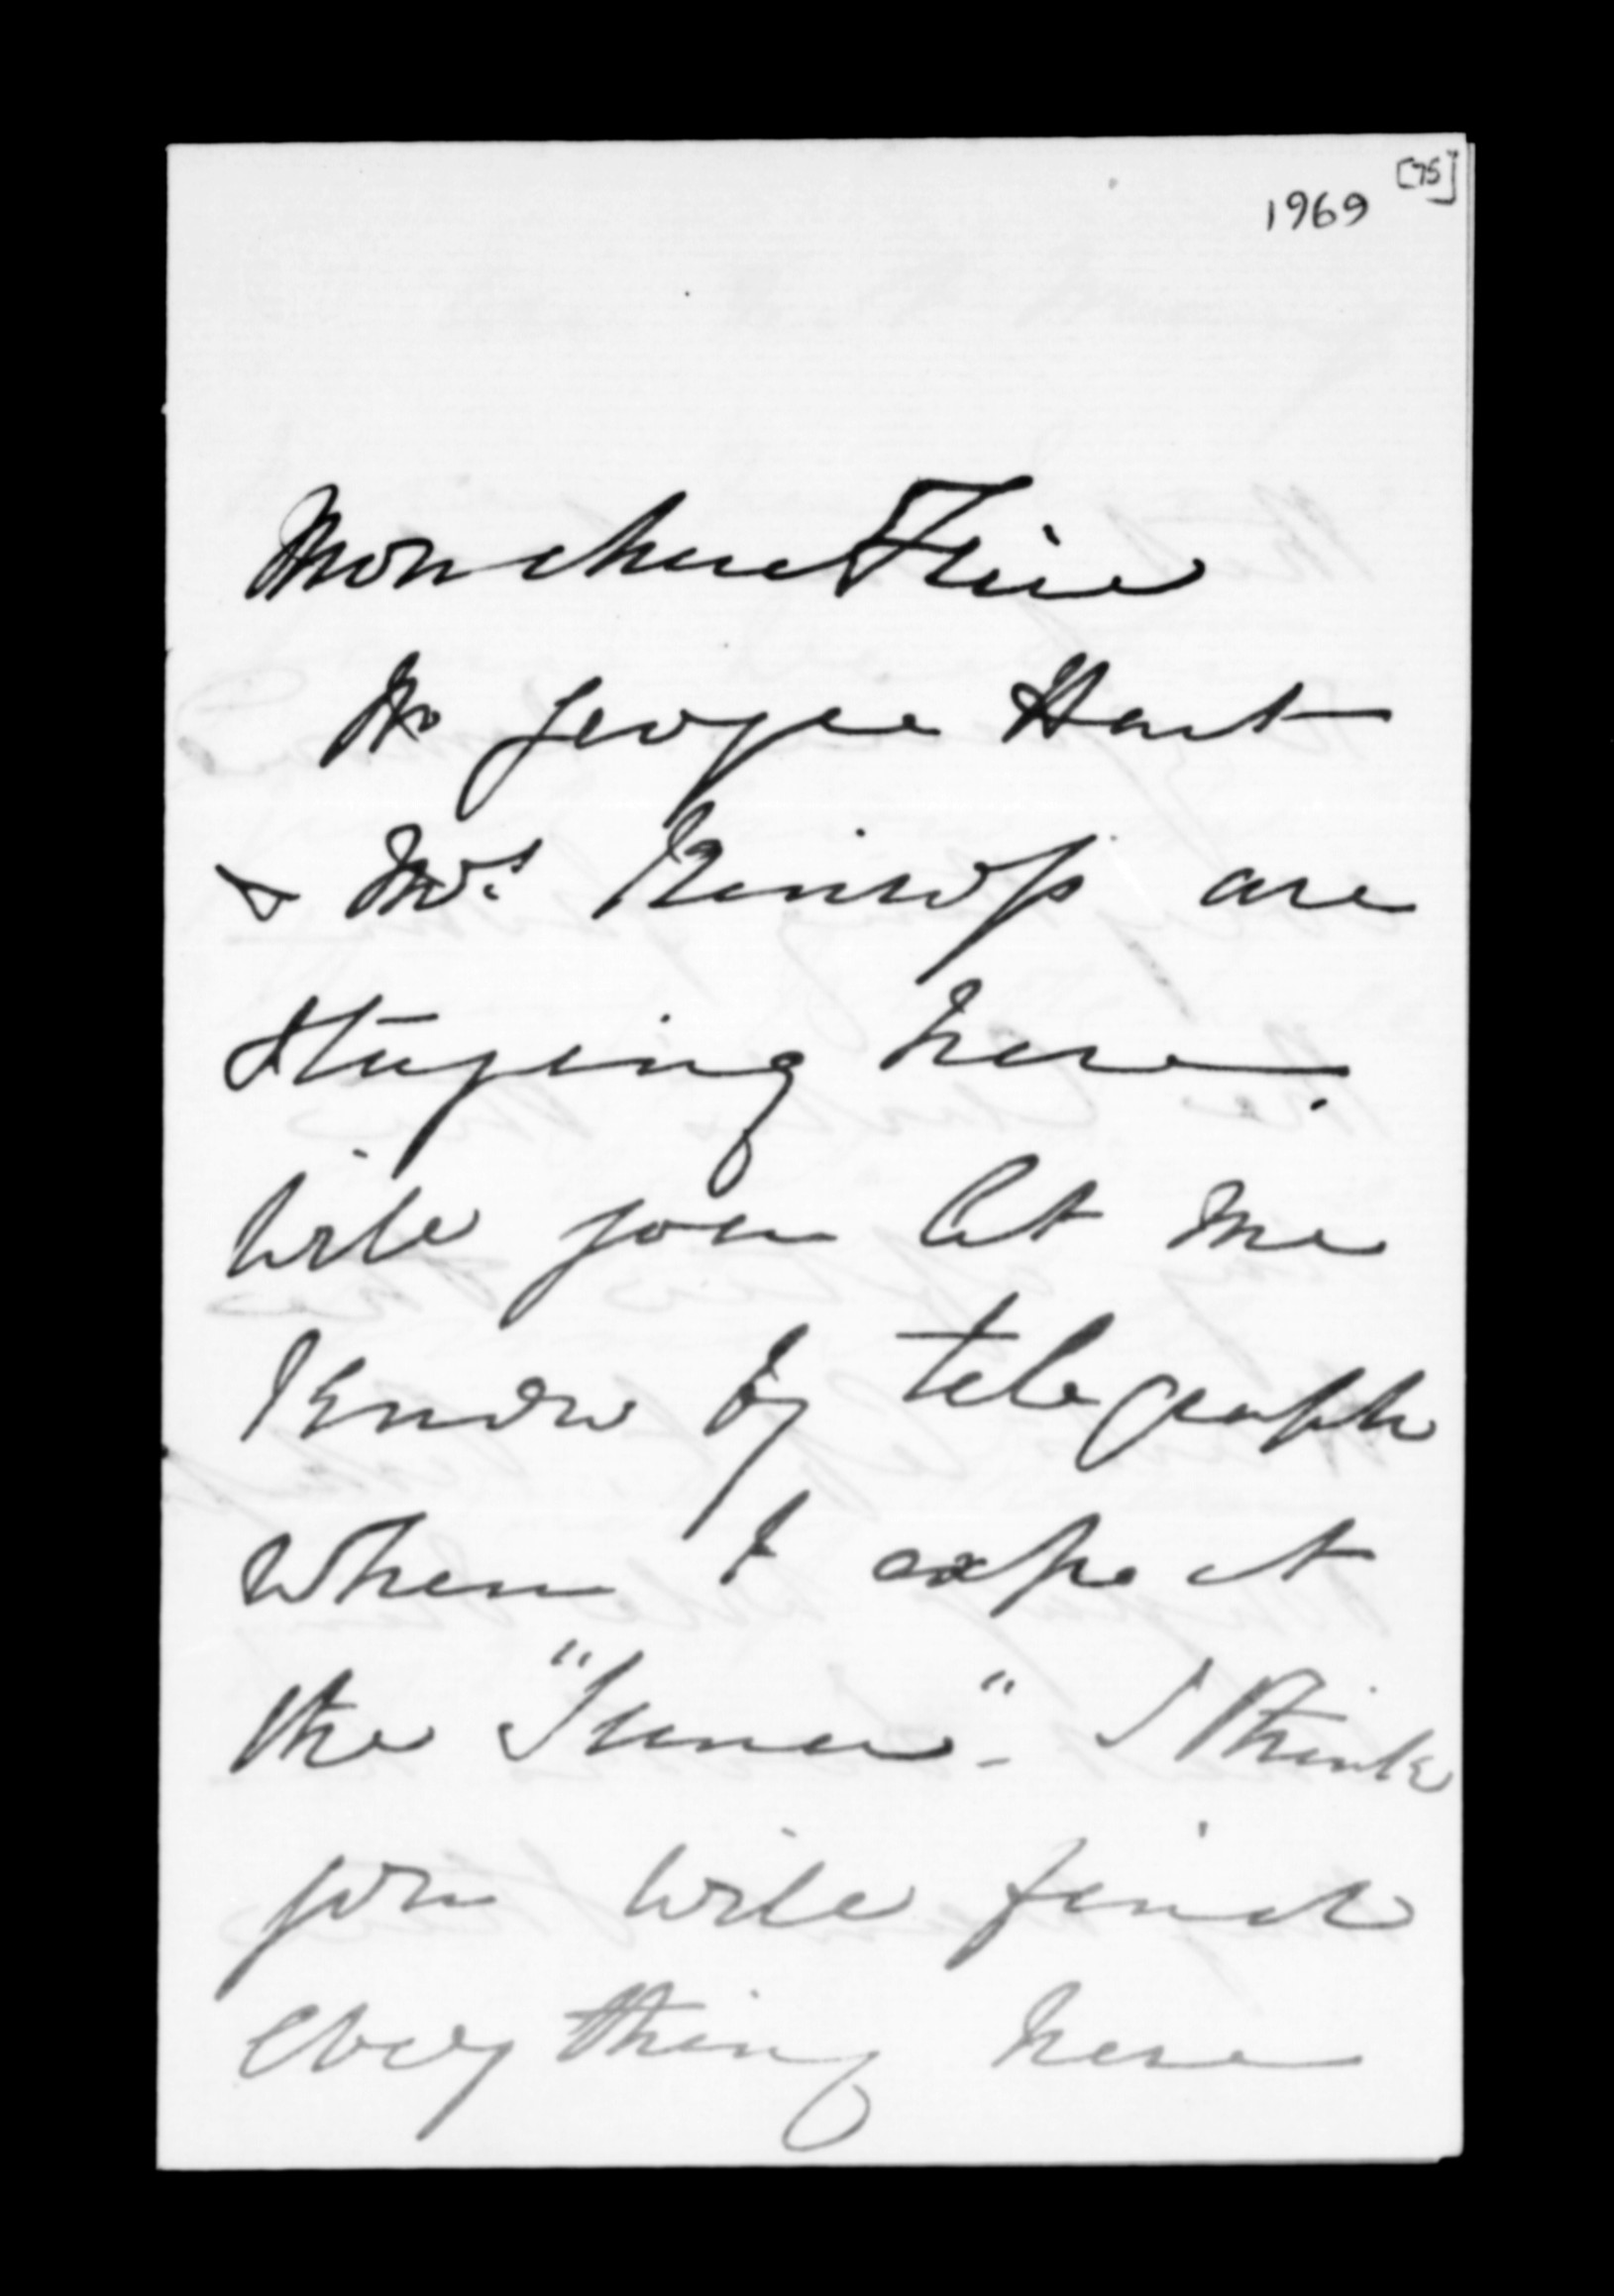 [75]
1969
Mon cher Frère
Mr George Hart
& Mrs are
staying here.
Will you let me
Know by telegraph
when to expect
the "Luna". I think
you will find
everything here